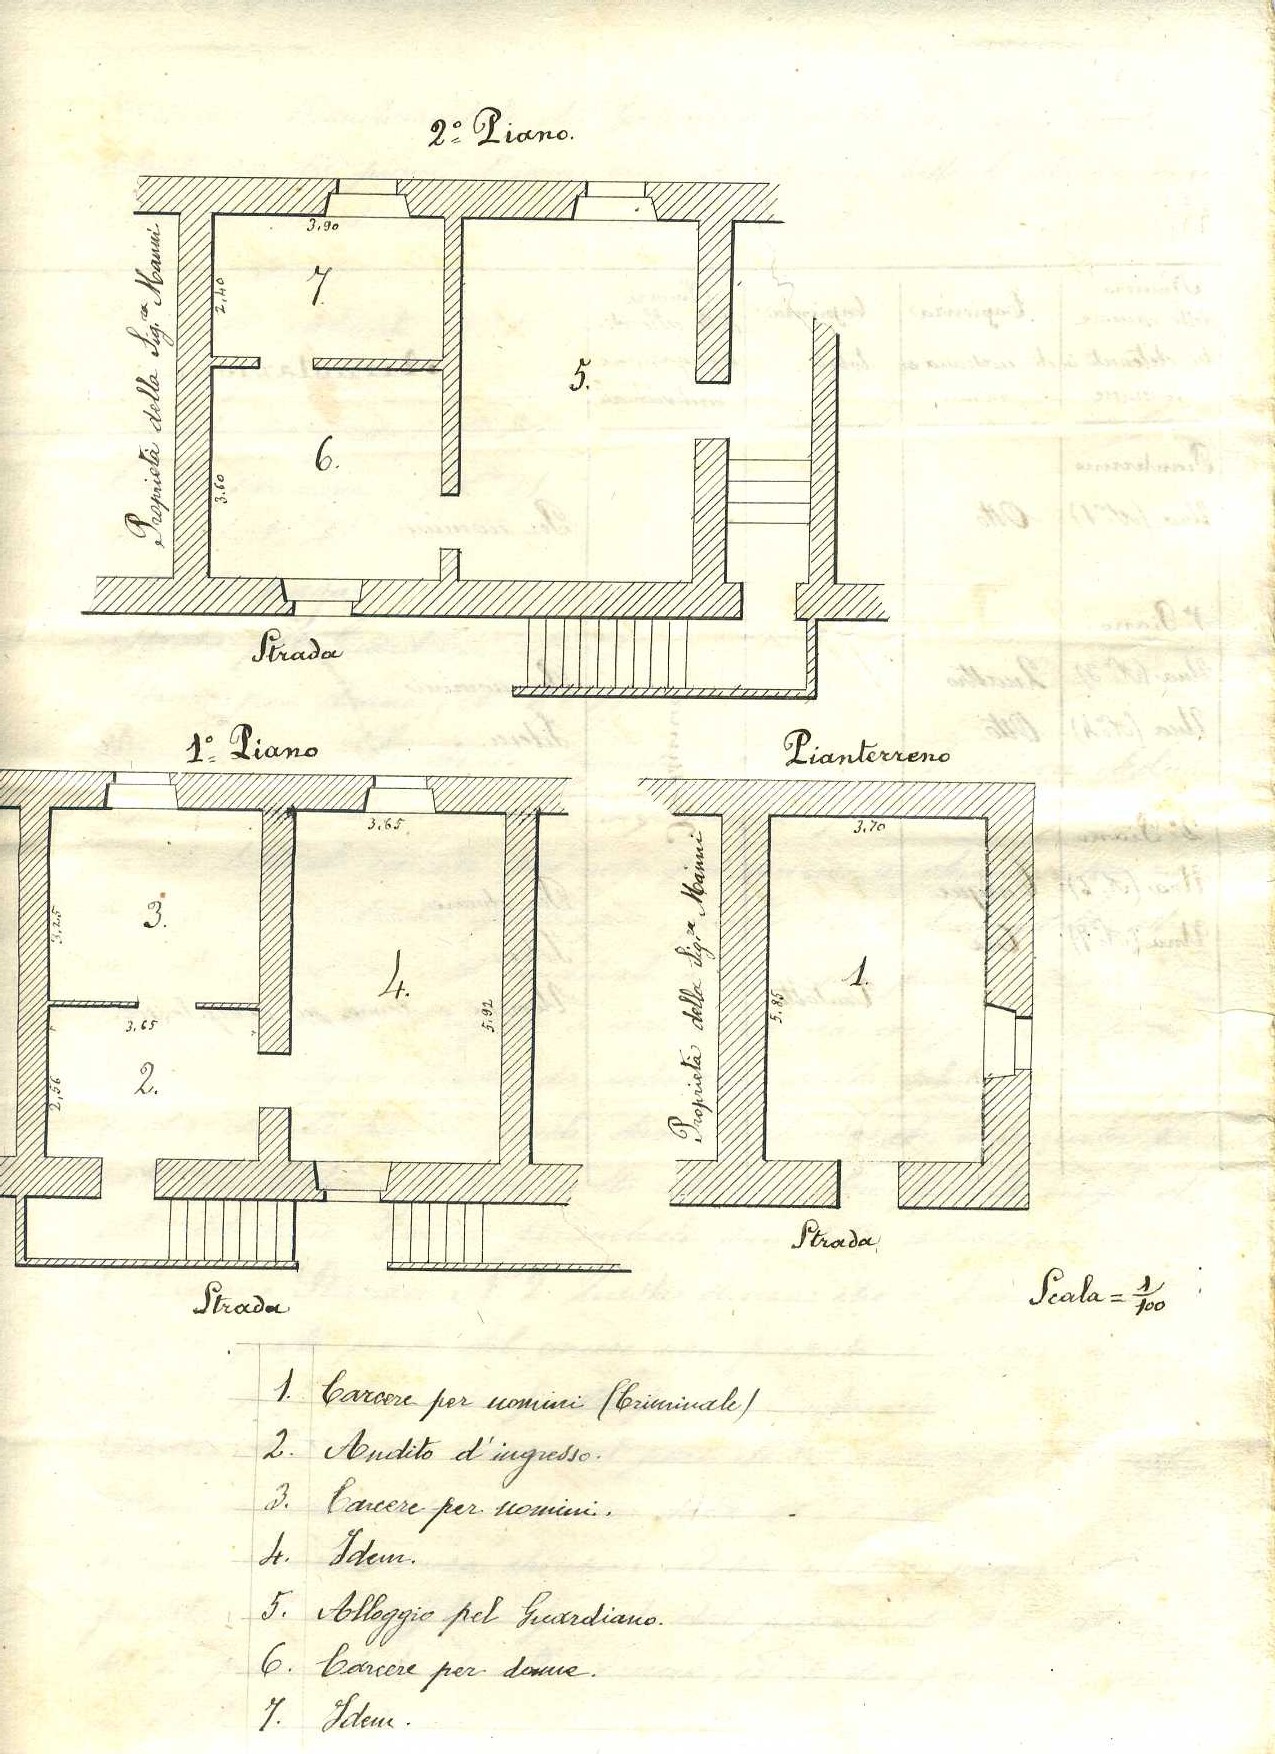 2º Piano.
3,90
7.
2,40
Proprietà della Sig.ra Manni
5.
6.
3.60
Strada
1º Piano
3,65
3.
3,25
4.
5.92
3,65
2.
2,56
Strada
Pianterreno
3,70
Proprietà della Sig.ra Manni
1.
5,85
Strada
Scala = 1/100
1. Carcere per uomini (Criminale)
2. Andito d'ingresso.
3. Carcere per uomini.
4. Idem.
5. Alloggio pel Guardiano.
6. Carcere per donne.
7. Idem.